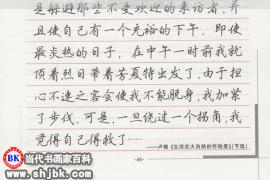 是躲避那些不受欢迎的来访者,并
且使自己有一个充裕的下午。即使
最炎热的日子,在中午一时前我就
顶着烈日带着苦夏特出发了,由于担
心不速之客会使我不能脱身,我加紧
了步伐,可是,一旦绕过一个拐角,我
觉得自己得救了……
——卢梭《生活在大自然的怀抱里》(节选)
-46-
BK 当代书画家百科
www.shjbk.com